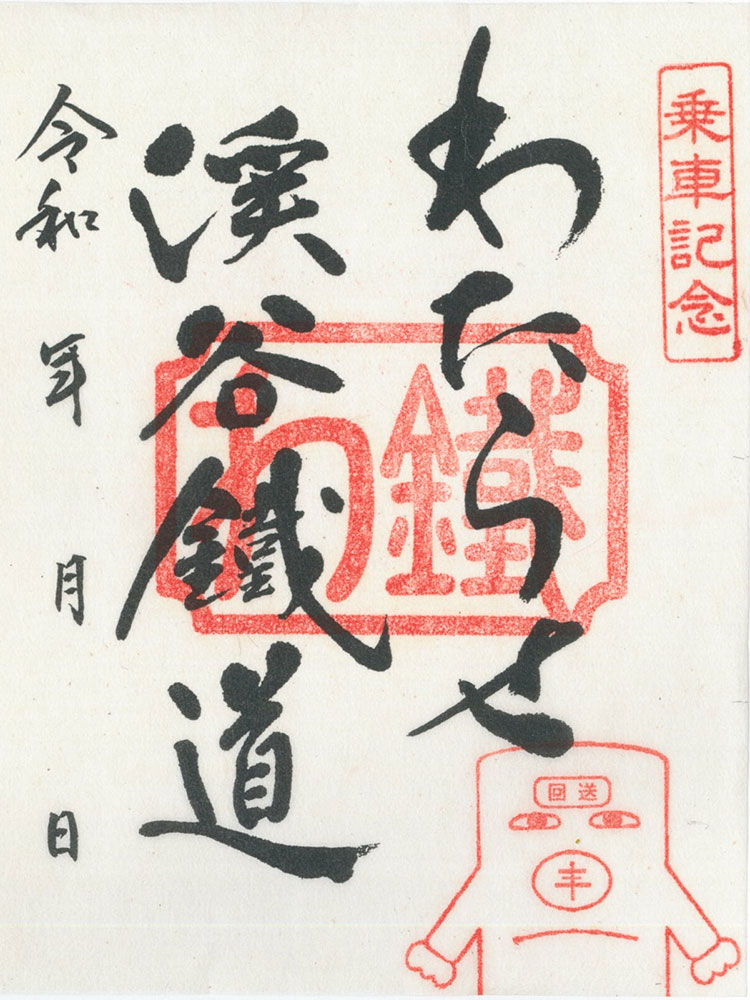 乗車記念
わたらせ
渓谷鐵道
令和 年 月 日
わ鐵
回送